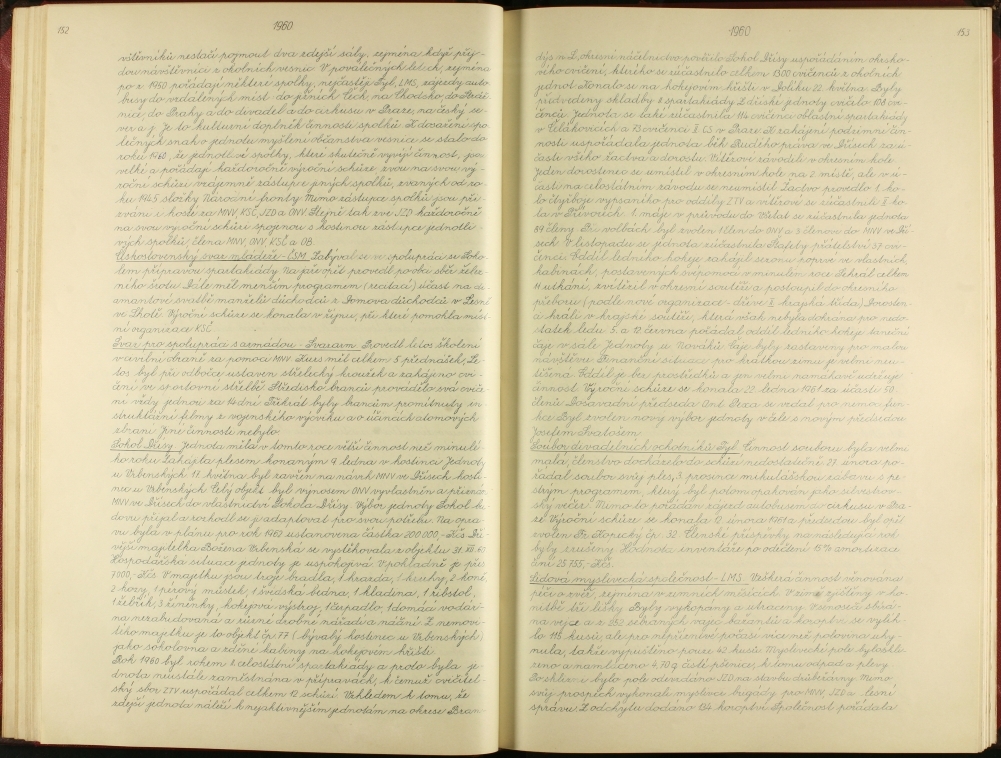 152
1960
vštěvníků nestačí pojmout dva zdejší sály, zejména když přij-
dou návštěvníci z okolních vesnic. V poválečných letech, zejména
po r. 1950 pořádají některé spolky, nejčastěji Tyl, LMS, zájezdy auto-
busy do vzdálených míst - do jižních Čech, na Chodsko, do Stráž-
nice, do Prahy a do divadel a do cirkusu v Praze, na český se-
ver a j. Je to kulturní doplněk činnosti spolků. K utvoření spo-
lečných snah v jednotu myšlení občanstva vesnice se stalo do
roku 1960, že jednotlivé spolky, které skutečně vyvíjí činnost, jsou
velké a pořádají každoročně výroční schůze zvou na svou vý-
roční schůzi vzájemně zástupce jiných spolků, zvaných od ro-
ku 1945 složky Národní fronty. Mimo zástupce spolků jsou při-
zváni i hosté za MNV, KSČ, JZD a ONV. Stejně tak zve JZD každoročně
na svou výroční schůzi spojenou s hostinou zástupce jednotli-
vých spolků, člena MNV, ONV, KSČ a OB.
Československý svaz mládeže - ČSM. Zabýval se ve spolupráci se Soko-
lem přípravou spartakiády. Na jaře opět provedl po obci sběr želez-
ného šrotu. Dále měl menším programem (recitací) účast na di-
amantové svatbě manželů důchodců z Domova důchodců v Lesní
ve Lhotě. Výroční schůze se konala v říjnu, při které pomohla míst-
ní organizace KSČ.
Svaz pro spolupráci s armádou - Svazarm. Provedl letos školení
v civilní obraně za pomoci MNV. Kurs měl celkem 5 přednášek. Le-
tos byl při odbočce ustaven střelecký kroužek a zahájeno cvi-
čení ve sportovní střelbě. Středisko branců provádělo svá cviče-
ní vždy jednou za 14 dní. Třikrát byly brancům promítnuty in-
struktážní filmy z vojenského výcviku a o účincích atomových
zbraní. Jiné činnosti nebylo.
Sokol Dřísy. Jednota měla v tomto roce větší činnost než minulé-
ho roku. Zahájila plesem konaným 9. ledna v hostinci Jednoty
u Vrbenských. 17. května byl zavřen na návrh MNV v Dřísech hosti-
nec u Vrbenských. Celý objekt byl výnosem ONV vyvlastněn a přičiněn
MNV ve Dřísech do vlastnictví Sokola Dřísy. Výbor jednoty Sokol bu-
dovu přijal a rozhodl se ji adaptovat pro svou potřebu. Na opra-
vu byla v plánu pro rok 1962 ustanovena částka 200.000,- Kčs. Dří-
vější majitelka Božena Vrbenská se vystěhovala z objektu 31. XII. 60.
Hospodářská situace jednoty je uspokojivá. V pokladně je přes
7000,- Kčs. V majetku jsou troje bradla, 1 hrazda, 1 kruhy, 2 koně,
2 kozy, 1 pérový můstek, 1 švédská bedna, 1 kladina, 1 řebřiň,
1 žebřík, 3 žíněnky, hokejová výstroj, 1 čerpadlo, 1 domácí vodár-
na nezabudovaná a různé drobné nářadí a náčiní. Z nemovi-
tého majetku je to objekt čp. 77 (bývalý hostinec u Vrbenských)
jako sokolovna a zděné kabiny na hokejovém hřišti.
Rok 1960 byl rokem II. celostátní spartakiády a proto byla je-
dnota neustále zaměstnána v přípravách, k čemuž cvičitel-
ský sbor ZTV uspořádal celkem 12 schůzí. Vzhledem k tomu, že
zdejší jednota náleží k nejaktivnějším jednotám na okrese Bran-
1960
153
dýs n. L. okresní náčelnictvo pověřilo Sokol Dřísy uspořádáním okrsko-
vého cvičení, kterého se zúčastnilo celkem 1300 cvičenců z okolních
jednot. Konalo se na hokejovém hřišti v Dolíku 22. května. Byly
předvedeny skladby z spartakiády. Z dříské jednoty cvičilo 108 cvi-
čenců. Jednota se také zúčastnila 114 cvičenci oblastní spartakiády
v Čelákovicích a 13 cvičenci II. CS v Praze. K zahájení podzimní čin-
nosti uspořádala jednota běh Rudého práva ve Dřísech za ú-
časti všeho žactva a dorostu. Vítězové závodili v okresním kole.
Jeden dorostenec se umístil v okresním kole na 2. místě, ale v ú-
časti na celostátním závodu se neumístil. Žactvo provedlo I. ko-
lo čtyřboje vypsaného pro oddíly ZTV a vítězové se zúčastnili II. ko-
la v Přívorách. 1. máje v průvodu do Všetat se zúčastnila jednota
89 členy. Při volbách byl zvolen 1 člen do ONV a 3 členové do MNV ve Dří-
sech. V listopadu se jednota zúčastnila Štafety přátelství 37 cvi-
čenci. Oddíl ledního hokeje zahájil sezonu poprvé ve vlastních
kabinách, postavených svépomocí v minulém roce. Sehrál celkem
11 utkání, zvítězil v okresní soutěži a postoupil do okresního
přeboru (podle nové organizace - dříve II. krajská třída). Dorosten-
ci hráli v krajské soutěži, která však nebyla dohrána pro nedo-
statek ledu. 5. a 12. června pořádal oddíl ledního hokeje taneční
čaje v sále Jednoty u Nováků. Čaje byly zastaveny pro malou
návštěvu. Finanční situace pro krátkou zimu je velmi neu-
těšená. Oddíl je bez prostředků a jen velmi namáhavě udržuje
činnost. Výroční schůze se konala 22. ledna 1961 za účasti 50
členů. Dosavadní předseda Ant. se vzdal pro nemoc fun-
kce. Byl zvolen nový výbor jednoty v čele s novým předsedou
Josefem Svatošem.
Soubor divadelních ochotníků Tyl. Činnost souboru byla velmi
malá, členstvo docházelo do schůzí nedostatečně. 27. února po-
řádal soubor svůj ples, 3. prosince mikulášskou zábavu s pe-
strým programem, který byl potom opakován jako silvestrov-
ský večer. Mimo to pořádán zájezd autobusem do cirkusu v Pra-
ze. Výroční schůze se konala 12. února 1961 a předsedou byl opět
zvolen Fr. Kopecký čp. 32. Členské příspěvky na následující rok
byly zrušeny. Hodnota inventáře po odečtení 15 % amortizace
činí 25.755,- Kčs.
Lidová myslivecká společnost - LMS. Veškerá činnost věnována
péči o zvěř, zejména v zimních měsících. V zimě zjištěny v ho-
nitbě tři lišky. Byly vykopány a utraceny. V únoseči sbírá-
na vejce a z 352 sebraných vajec bažantů a koroptví se vylíh-
lo 115 kusů, ale pro nepříznivé počasí více než polovina uhy-
nula, takže vypuštěno pouze 42 kusů. Myslivecké pole bylo skli-
zeno a namláceno 4,70 q čisté pšenice, k tomu odpad a plevy.
Po sklizni bylo pole odevzdáno JZD na stavbu drůbežárny. Mimo
svůj prospěch vykonali myslivci brigády pro MNV, JZD a lesní
správu. Z odchytu dodáno 134 koroptví. Společnost pořádala